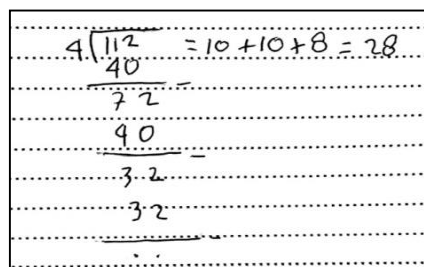 4 112 = 10 + 10 + 8 = 28
40 -
72
40 -
32
32 -
..